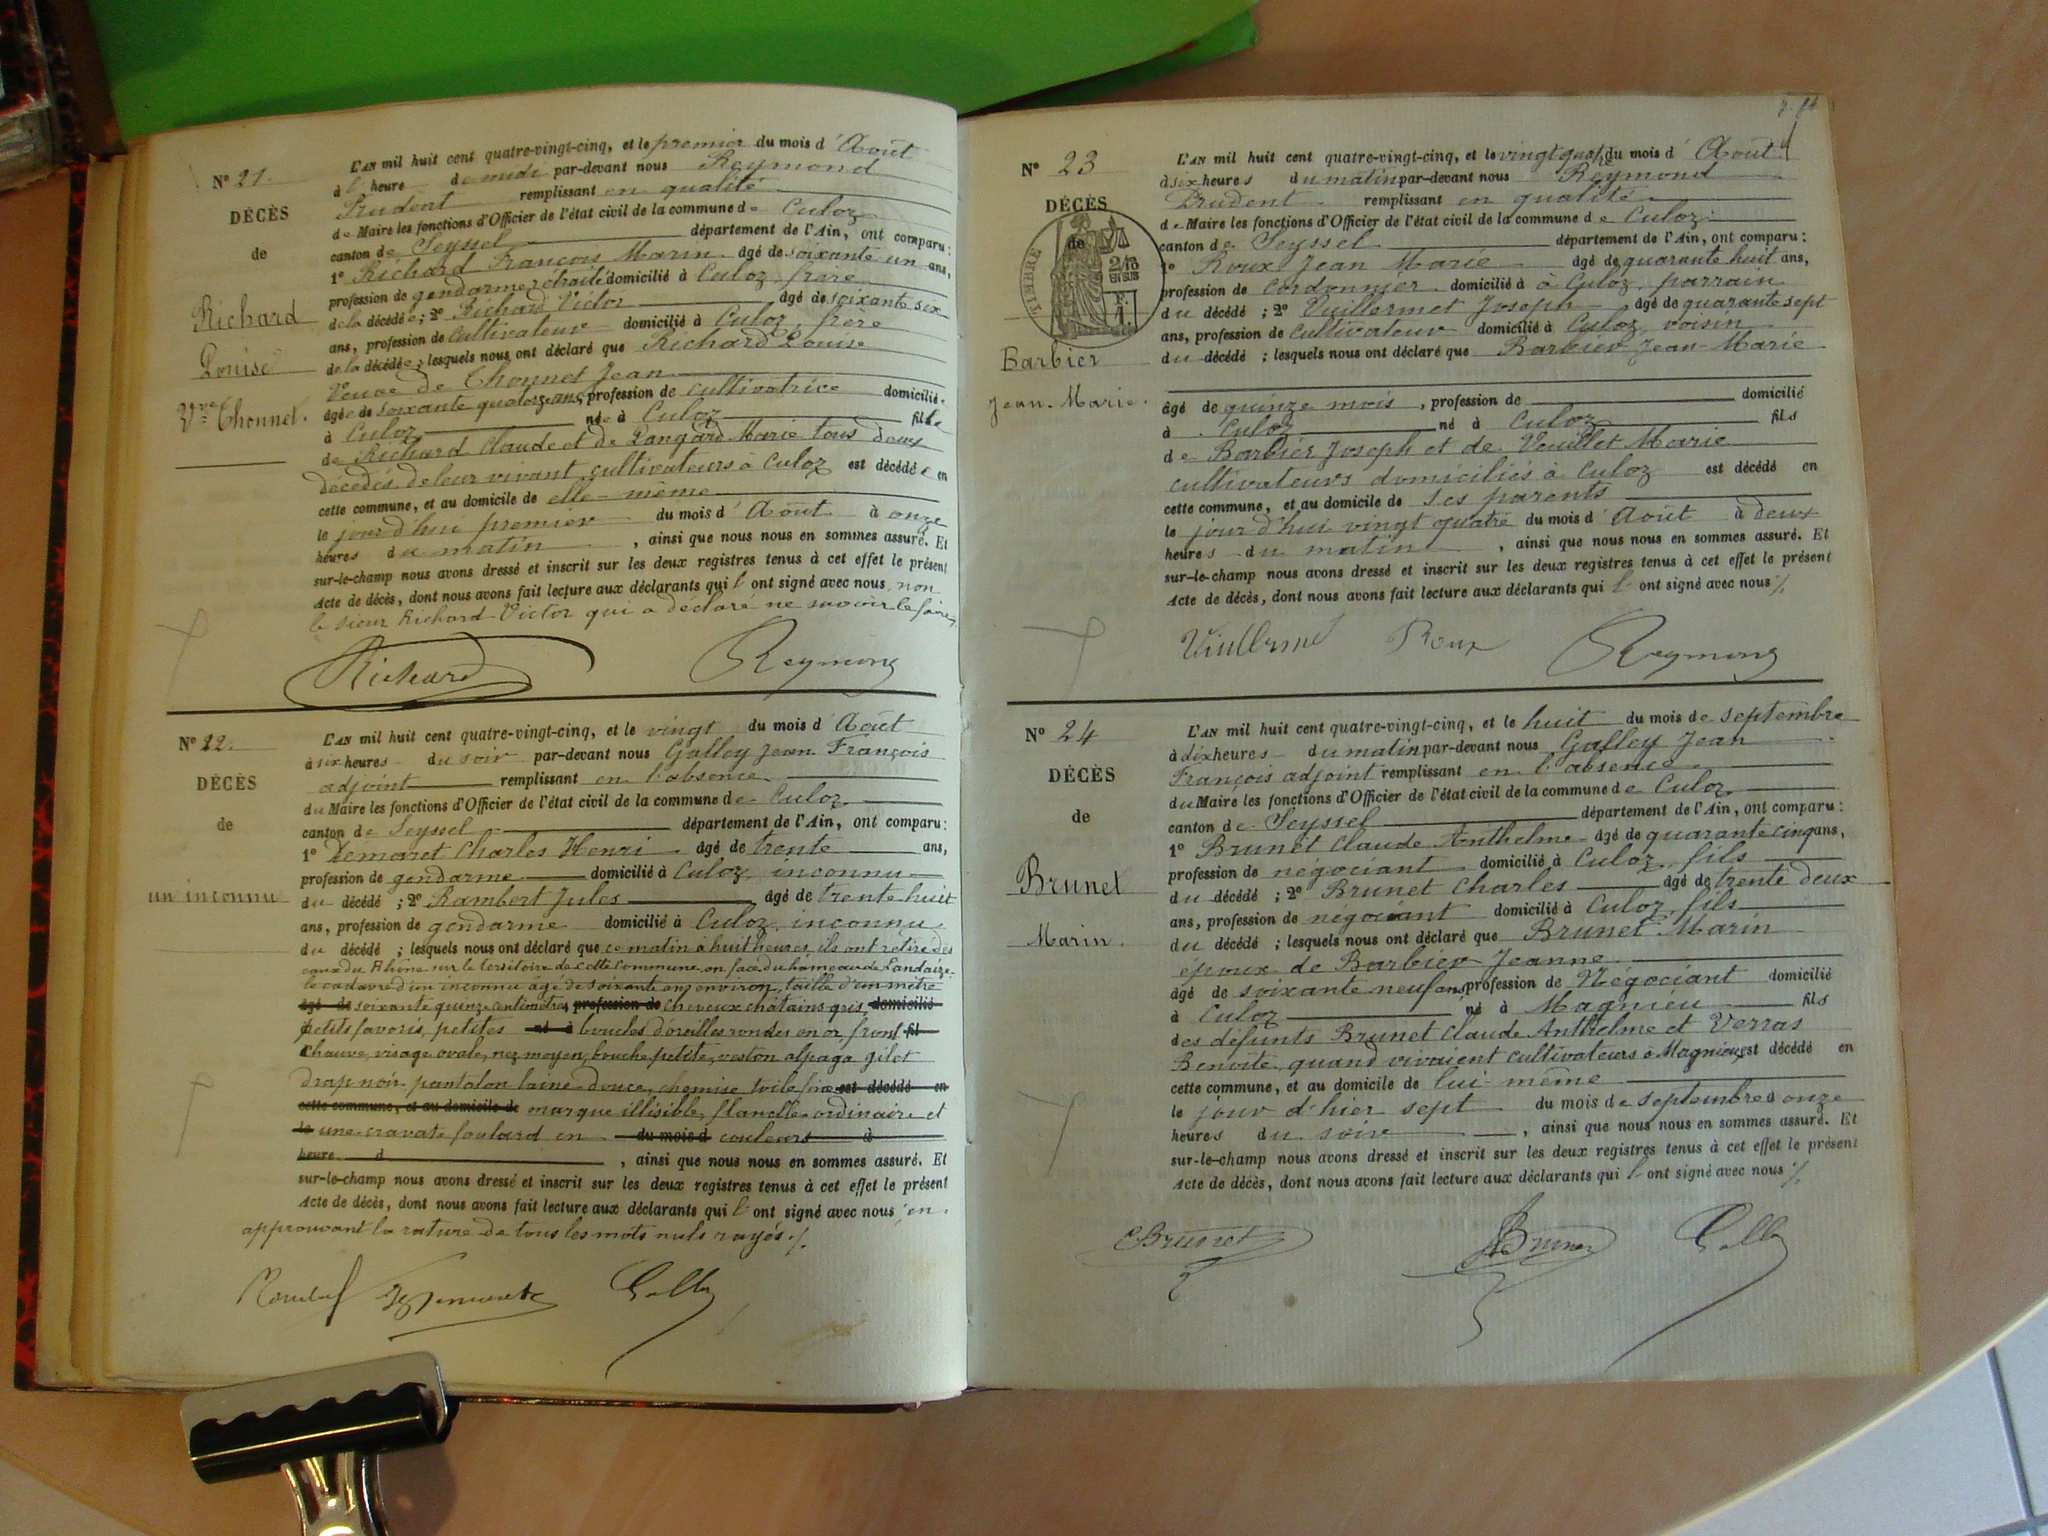 N° 21.
DÉCÈS
de
Richard
Louise
Vve Thonnet.
L'AN mil huit cent quatre-vingt-cinq, et le premier du mois d'Août
à l'heure de midi par-devant nous Reymond
Prudent remplissant en qualité
de Maire les fonctions d'Officier de l'état civil de la commune de Culoz
canton de Seyssel département de l'Ain, ont comparu :
1° Richard François Marin âgé de soixante un ans,
profession de gendarme retraité domicilié à Culoz, frère
de la décédée ; 2° Richard Victor âgé de soixante six
ans, profession de cultivateur domicilié à Culoz, frère
de la décédée ; lesquels nous ont déclaré que Richard Louise
Veuve de Thonnet Jean
âgée de soixante quatorze ans, profession de cultivatrice domiciliée
à Culoz née à Culoz fille
de Richard Claude et de Pangard Marie tous deux
décédés de leur vivant cultivateurs à Culoz est décédée en
cette commune, et au domicile de elle-même
le jourd'hui premier du mois d'Août à onze
heures du matin, ainsi que nous nous en sommes assuré. Et
sur-le-champ nous avons dressé et inscrit sur les deux registres tenus à cet effet le présent
Acte de décès, dont nous avons fait lecture aux déclarants qui l'ont signé avec nous, non
le sieur Richard Victor qui a déclaré ne savoir le faire.
Richard Reymond
N° 22.
DÉCÈS
de
un inconnu
L'AN mil huit cent quatre-vingt-cinq, et le vingt du mois d'Août
à six heures du soir par-devant nous Galley Jean François
adjoint remplissant en l'absence
du Maire les fonctions d'Officier de l'état civil de la commune de Culoz
canton de Seyssel département de l'Ain, ont comparu :
1° Demaret Charles Henri âgé de trente ans,
profession de gendarme domicilié à Culoz, inconnu
du décédé ; 2° Rambert Jules âgé de trente huit
ans, profession de gendarme domicilié à Culoz, inconnu
du décédé ; lesquels nous ont déclaré que ce matin à huit heures, ils ont retiré des
eaux du Rhône sur le territoire de cette commune en face du hameau de Landaize
le cadavre d'un inconnu âgé de soixante ans environ, taille d'un mètre
âgé de soixante quinze centimètres, profession de cheveux châtains gris, domicilié
petits favoris, petites né à boucles d'oreilles rondes en or, front fil
chauve, visage ovale, nez moyen, bouche petite, veston alpaga gilet
drap noir pantalon laine douce, chemise toile fine est décédé en
cette commune, et au domicile de marque illisible, flanelle ordinaire et
le une cravate foulard en du mois d couleurs à
heure d , ainsi que nous nous en sommes assuré. Et
sur-le-champ nous avons dressé et inscrit sur les deux registres tenus à cet effet le présent
Acte de décès, dont nous avons fait lecture aux déclarants qui l'ont signé avec nous en
approuvant la rature de tous les mots nuls rayés ./.
Galley
N° 23
DÉCÈS
de
TIMBRE
2/10 EN SUS
Barbier
Jean-Marie.
L'AN mil huit cent quatre-vingt-cinq, et le vingt quatre du mois d'Août
à six heures du matin par-devant nous Reymond
Prudent remplissant en qualité
de Maire les fonctions d'Officier de l'état civil de la commune de Culoz
canton de Seyssel département de l'Ain, ont comparu :
1° Roux Jean Marie âgé de quarante huit ans,
profession de cordonnier domicilié à à Culoz, parrain
du décédé ; 2° Vuillermet Joseph, âgé de quarante sept
ans, profession de cultivateur domicilié à Culoz, voisin
du décédé ; lesquels nous ont déclaré que Barbier Jean-Marie
âgé de quinze mois, profession de domicilié
à Culoz né à Culoz fils
de Barbier Joseph et de Veuillet Marie
cultivateurs domiciliés à Culoz est décédé en
cette commune, et au domicile de ses parents
le jourd'hui vingt quatre du mois d'Août à deux
heures du matin, ainsi que nous nous en sommes assuré. Et
sur-le-champ nous avons dressé et inscrit sur les deux registres tenus à cet effet le présent
Acte de décès, dont nous avons fait lecture aux déclarants qui l'ont signé avec nous ./.
Vuillermet Roux Reymond
N° 24
DÉCÈS
de
Brunet
Marin.
L'AN mil huit cent quatre-vingt-cinq, et le huit du mois de septembre
à dix heures du matin par-devant nous Galley Jean
François adjoint remplissant en l'absence
du Maire les fonctions d'Officier de l'état civil de la commune de Culoz
canton de Seyssel département de l'Ain, ont comparu :
1° Brunet Claude Anthelme âgé de quarante cinq ans,
profession de négociant domicilié à Culoz, fils
du décédé ; 2° Brunet Charles âgé de trente deux
ans, profession de négociant domicilié à Culoz, fils
du décédé ; lesquels nous ont déclaré que Brunet Marin
époux de Barbier Jeanne
âgé de soixante neuf ans, profession de Négociant domicilié
à Culoz né à Magnieu fils
des défunts Brunet Claude Anthelme et Verras
Benoîte, quand vivaient cultivateurs à Magnieu est décédé en
cette commune, et au domicile de lui-même
le jour d'hier sept du mois de septembre à onze
heures du soir, ainsi que nous nous en sommes assuré. Et
sur-le-champ nous avons dressé et inscrit sur les deux registres tenus à cet effet le présent
Acte de décès, dont nous avons fait lecture aux déclarants qui l'ont signé avec nous ./.
C Brunet Brunet Galley